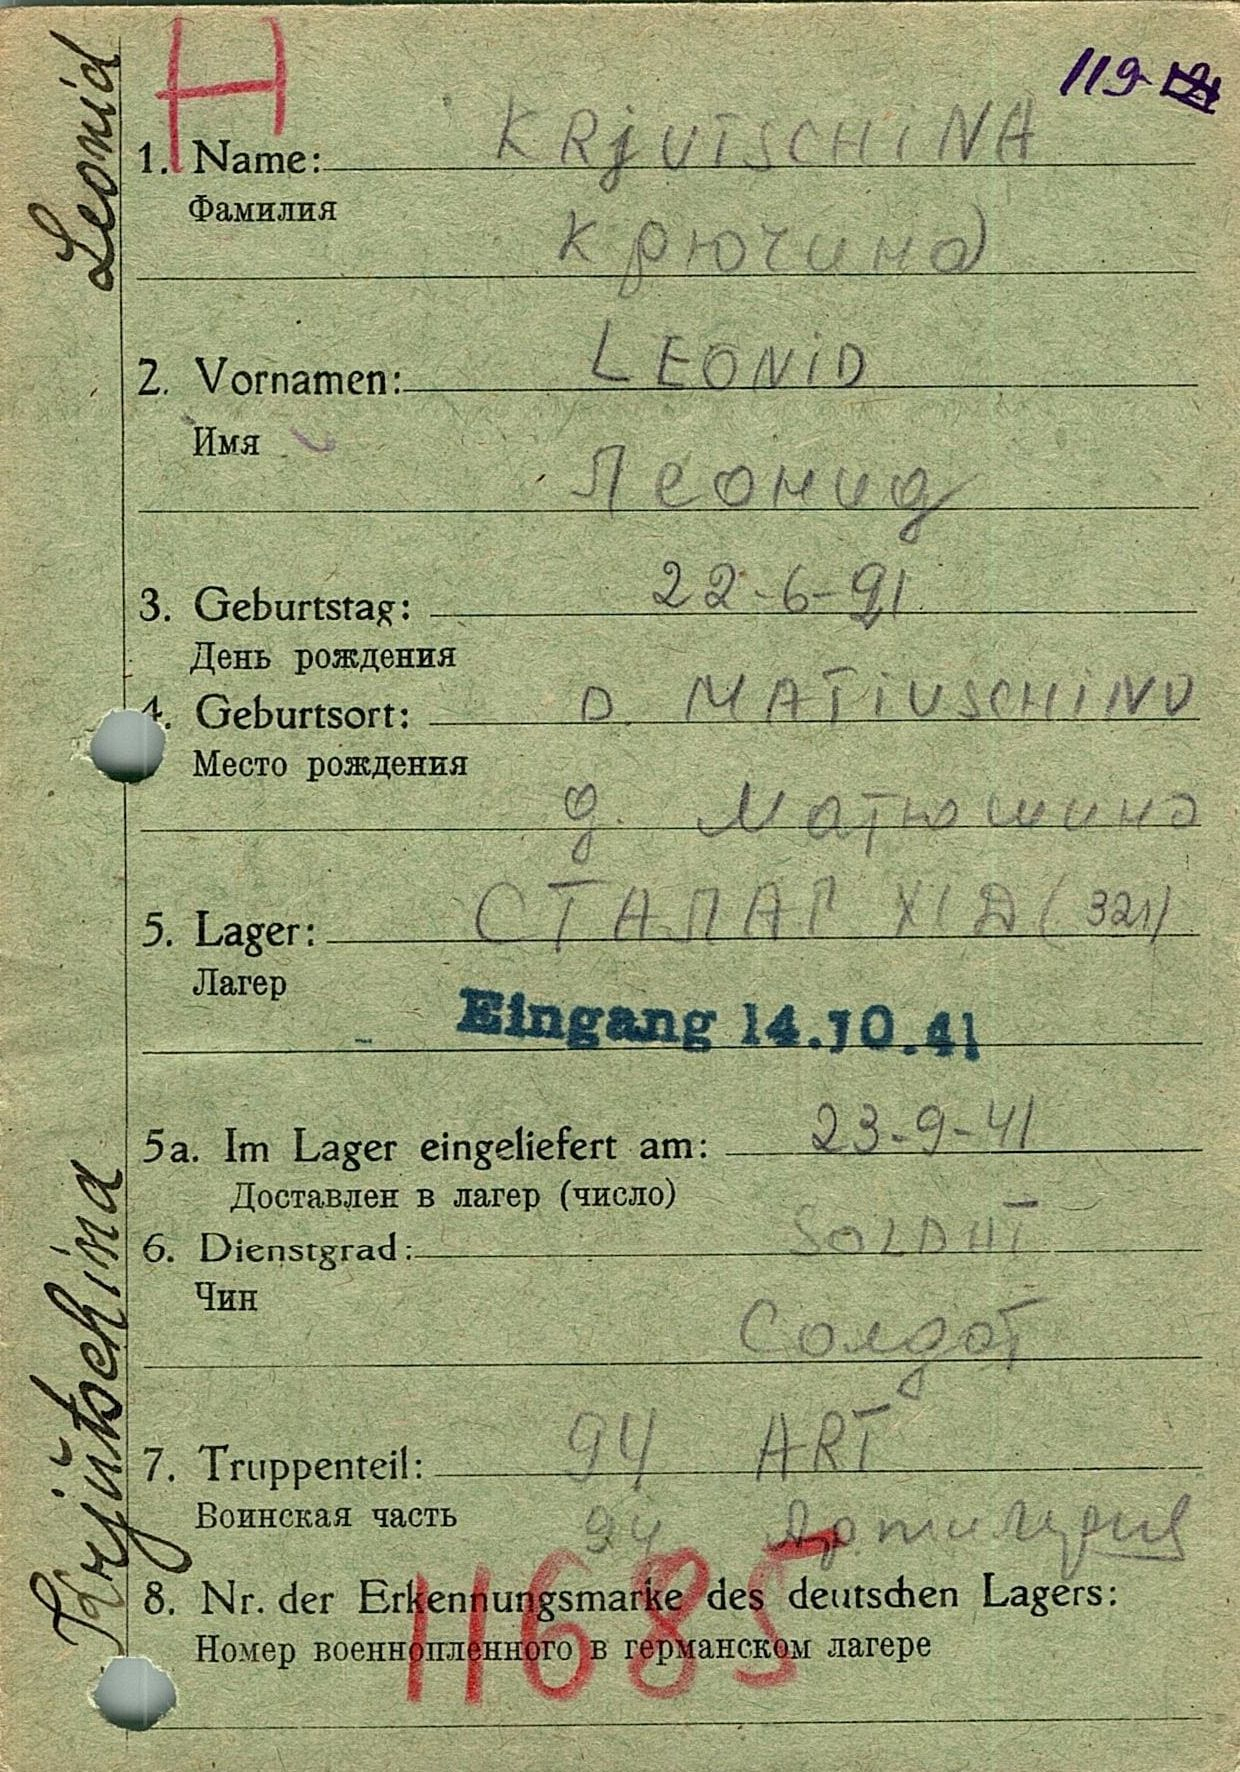 Leonid
Krjutschina
H
119
1. Name: KRjUTSCHiNA
Фамилия
Крючина
2. Vornamen: LEONiD
Имя
Леонид
3. Geburtstag: 22-6-91
День рождения
4. Geburtsort: D. MATiUSCHiNO
Место рождения
д. Матюшино
5. Lager: СТАЛАГ XI D (321)
Лагер
Eingang 14.10.41
5a. Im Lager eingeliefert am: 23-9-41
Доставлен в лагер (число)
6. Dienstgrad: SOLDAT
Чин
Солдат
7. Truppenteil: 94 ART
Воинская часть 94 Артилерия
8. Nr. der Erkennungsmarke des deutschen Lagers:
Номер военнопленного в германском лагере
11685